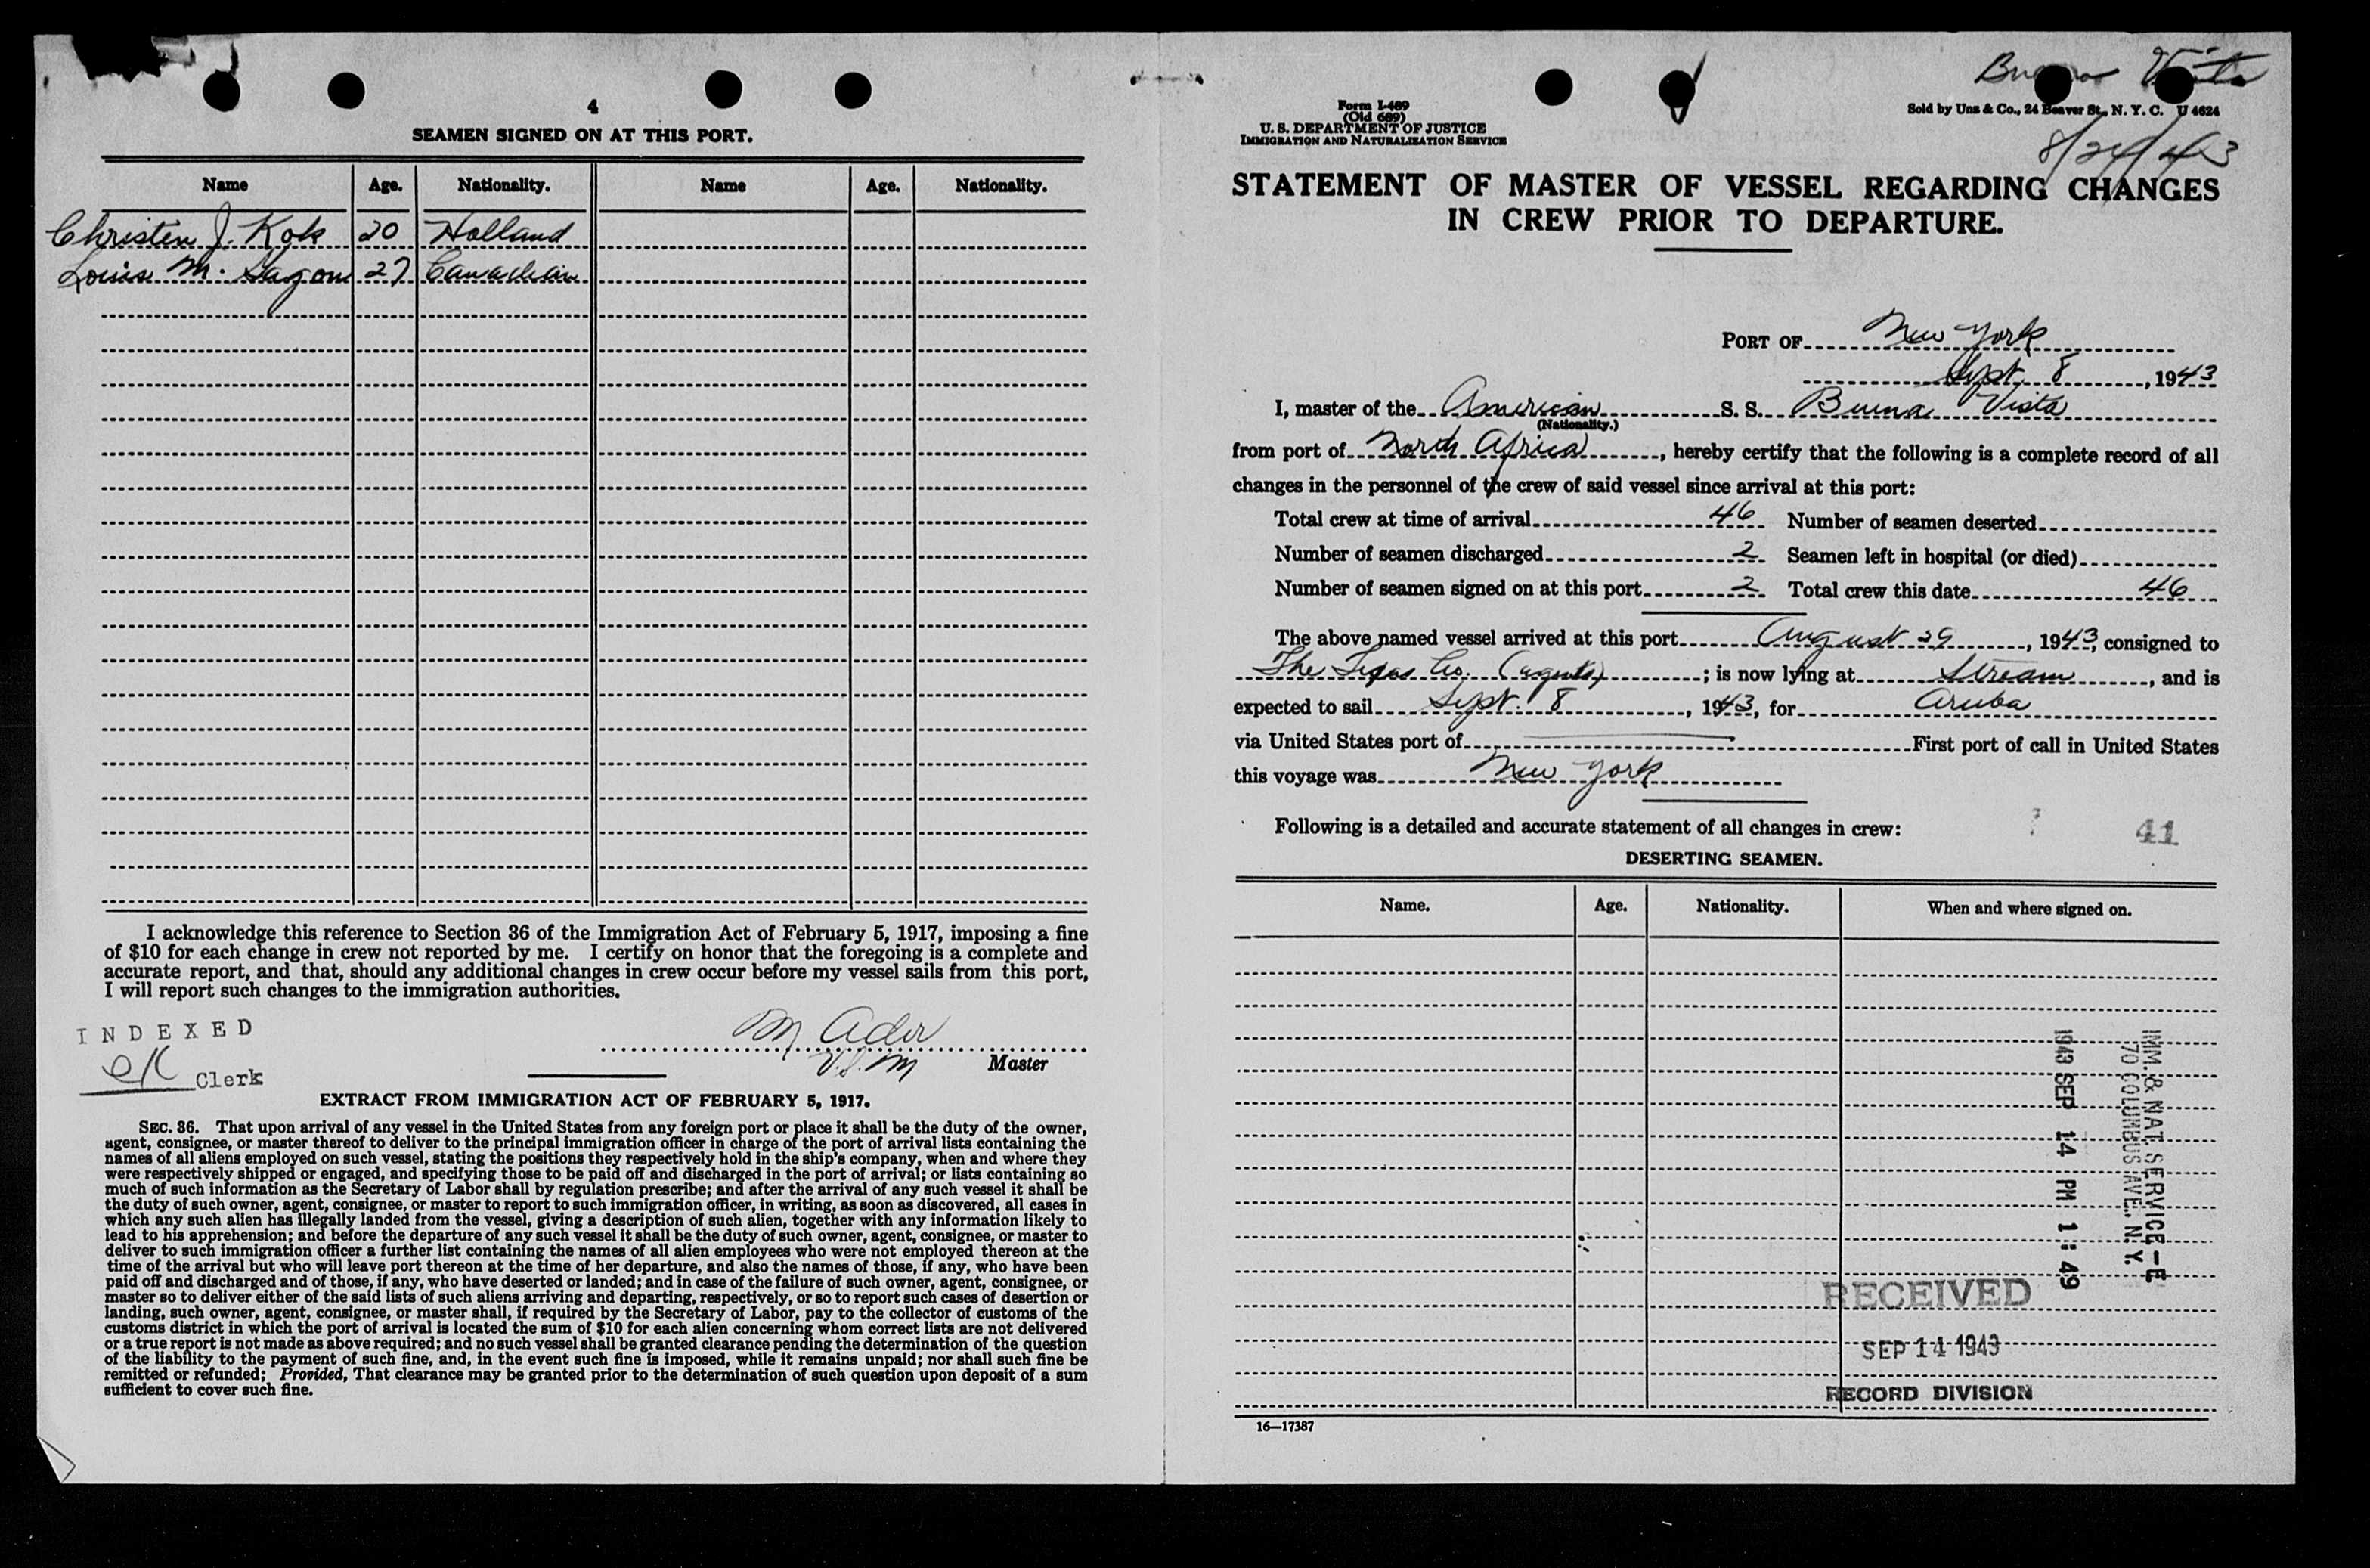 4
SEAMEN SIGNED ON AT THIS PORT.
Name Age. Nationality. Name Age. Nationality.
Christen J. Kok 20 Holland
Louis M. 27 Canadian
I acknowledge this reference to Section 36 of the Immigration Act of February 5, 1917, imposing a fine
of $10 for each change in crew not reported by me. I certify on honor that the foregoing is a complete and
accurate report, and that, should any additional changes in crew occur before my vessel sails from this port,
I will report such changes to the immigration authorities.
INDEXED
M Ader
Master
Clerk
EXTRACT FROM IMMIGRATION ACT OF FEBRUARY 5, 1917.
SEC. 36. That upon arrival of any vessel in the United States from any foreign port or place it shall be the duty of the owner,
agent, consignee, or master thereof to deliver to the principal immigration officer in charge of the port of arrival lists containing the
names of all aliens employed on such vessel, stating the positions they respectively hold in the ship's company, when and where they
were respectively shipped or engaged, and specifying those to be paid off and discharged in the port of arrival; or lists containing so
much of such information as the Secretary of Labor shall by regulation prescribe; and after the arrival of any such vessel it shall be
the duty of such owner, agent, consignee, or master to report to such immigration officer, in writing, as soon as discovered, all cases in
which any such alien has illegally landed from the vessel, giving a description of such alien, together with any information likely to
lead to his apprehension; and before the departure of any such vessel it shall be the duty of such owner, agent, consignee, or master to
deliver to such immigration officer a further list containing the names of all alien employees who were not employed thereon at the
time of the arrival but who will leave port thereon at the time of her departure, and also the names of those, if any, who have been
paid off and discharged and of those, if any, who have deserted or landed; and in case of the failure of such owner, agent, consignee, or
master so to deliver either of the said lists of such aliens arriving and departing, respectively, or so to report such cases of desertion or
landing, such owner, agent, consignee, or master shall, if required by the Secretary of Labor, pay to the collector of customs of the
customs district in which the port of arrival is located the sum of $10 for each alien concerning whom correct lists are not delivered
or a true report is not made as above required; and no such vessel shall be granted clearance pending the determination of the question
of the liability to the payment of such fine, and, in the event such fine is imposed, while it remains unpaid; nor shall such fine be
remitted or refunded; Provided, That clearance may be granted prior to the determination of such question upon deposit of a sum
sufficient to cover such fine.
Vista
Form I-489
(Old 689)
U. S. DEPARTMENT OF JUSTICE
IMMIGRATION AND NATURALIZATION SERVICE
Sold by Unz & Co., 24 Beaver St., N. Y. C. U 4624
8/24/43
STATEMENT OF MASTER OF VESSEL REGARDING CHANGES
IN CREW PRIOR TO DEPARTURE.
PORT OF New York
Sept. 8, 1943
I, master of the American S. S. Buena Vista
(Nationality.)
from port of North Africa, hereby certify that the following is a complete record of all
changes in the personnel of the crew of said vessel since arrival at this port:
Total crew at time of arrival 46 Number of seamen deserted
Number of seamen discharged 2 Seamen left in hospital (or died)
Number of seamen signed on at this port 2 Total crew this date 46
The above named vessel arrived at this port August 29, 1943, consigned to
The Texas Co. (agents); is now lying at Stream, and is
expected to sail Sept. 8, 1943, for Aruba
via United States port of First port of call in United States
this voyage was New York
Following is a detailed and accurate statement of all changes in crew:
41
DESERTING SEAMEN.
Name. Age. Nationality. When and where signed on.
IMM. & NAT. SERVICE - E
70 COLUMBUS AVE. N.Y.
1943 SEP 14 PM 1:49
RECEIVED
SEP 14 1943
RECORD DIVISION
16—17387